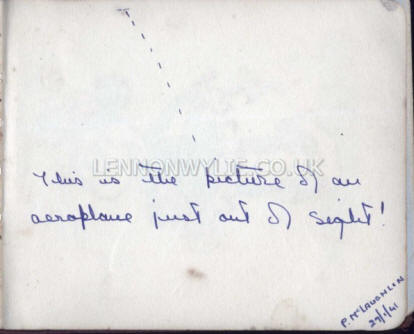 LENNONWYLIE.CO.UK
This is the picture of an
aeroplane just out of sight!
P. McLAUGHLIN
29/1/41